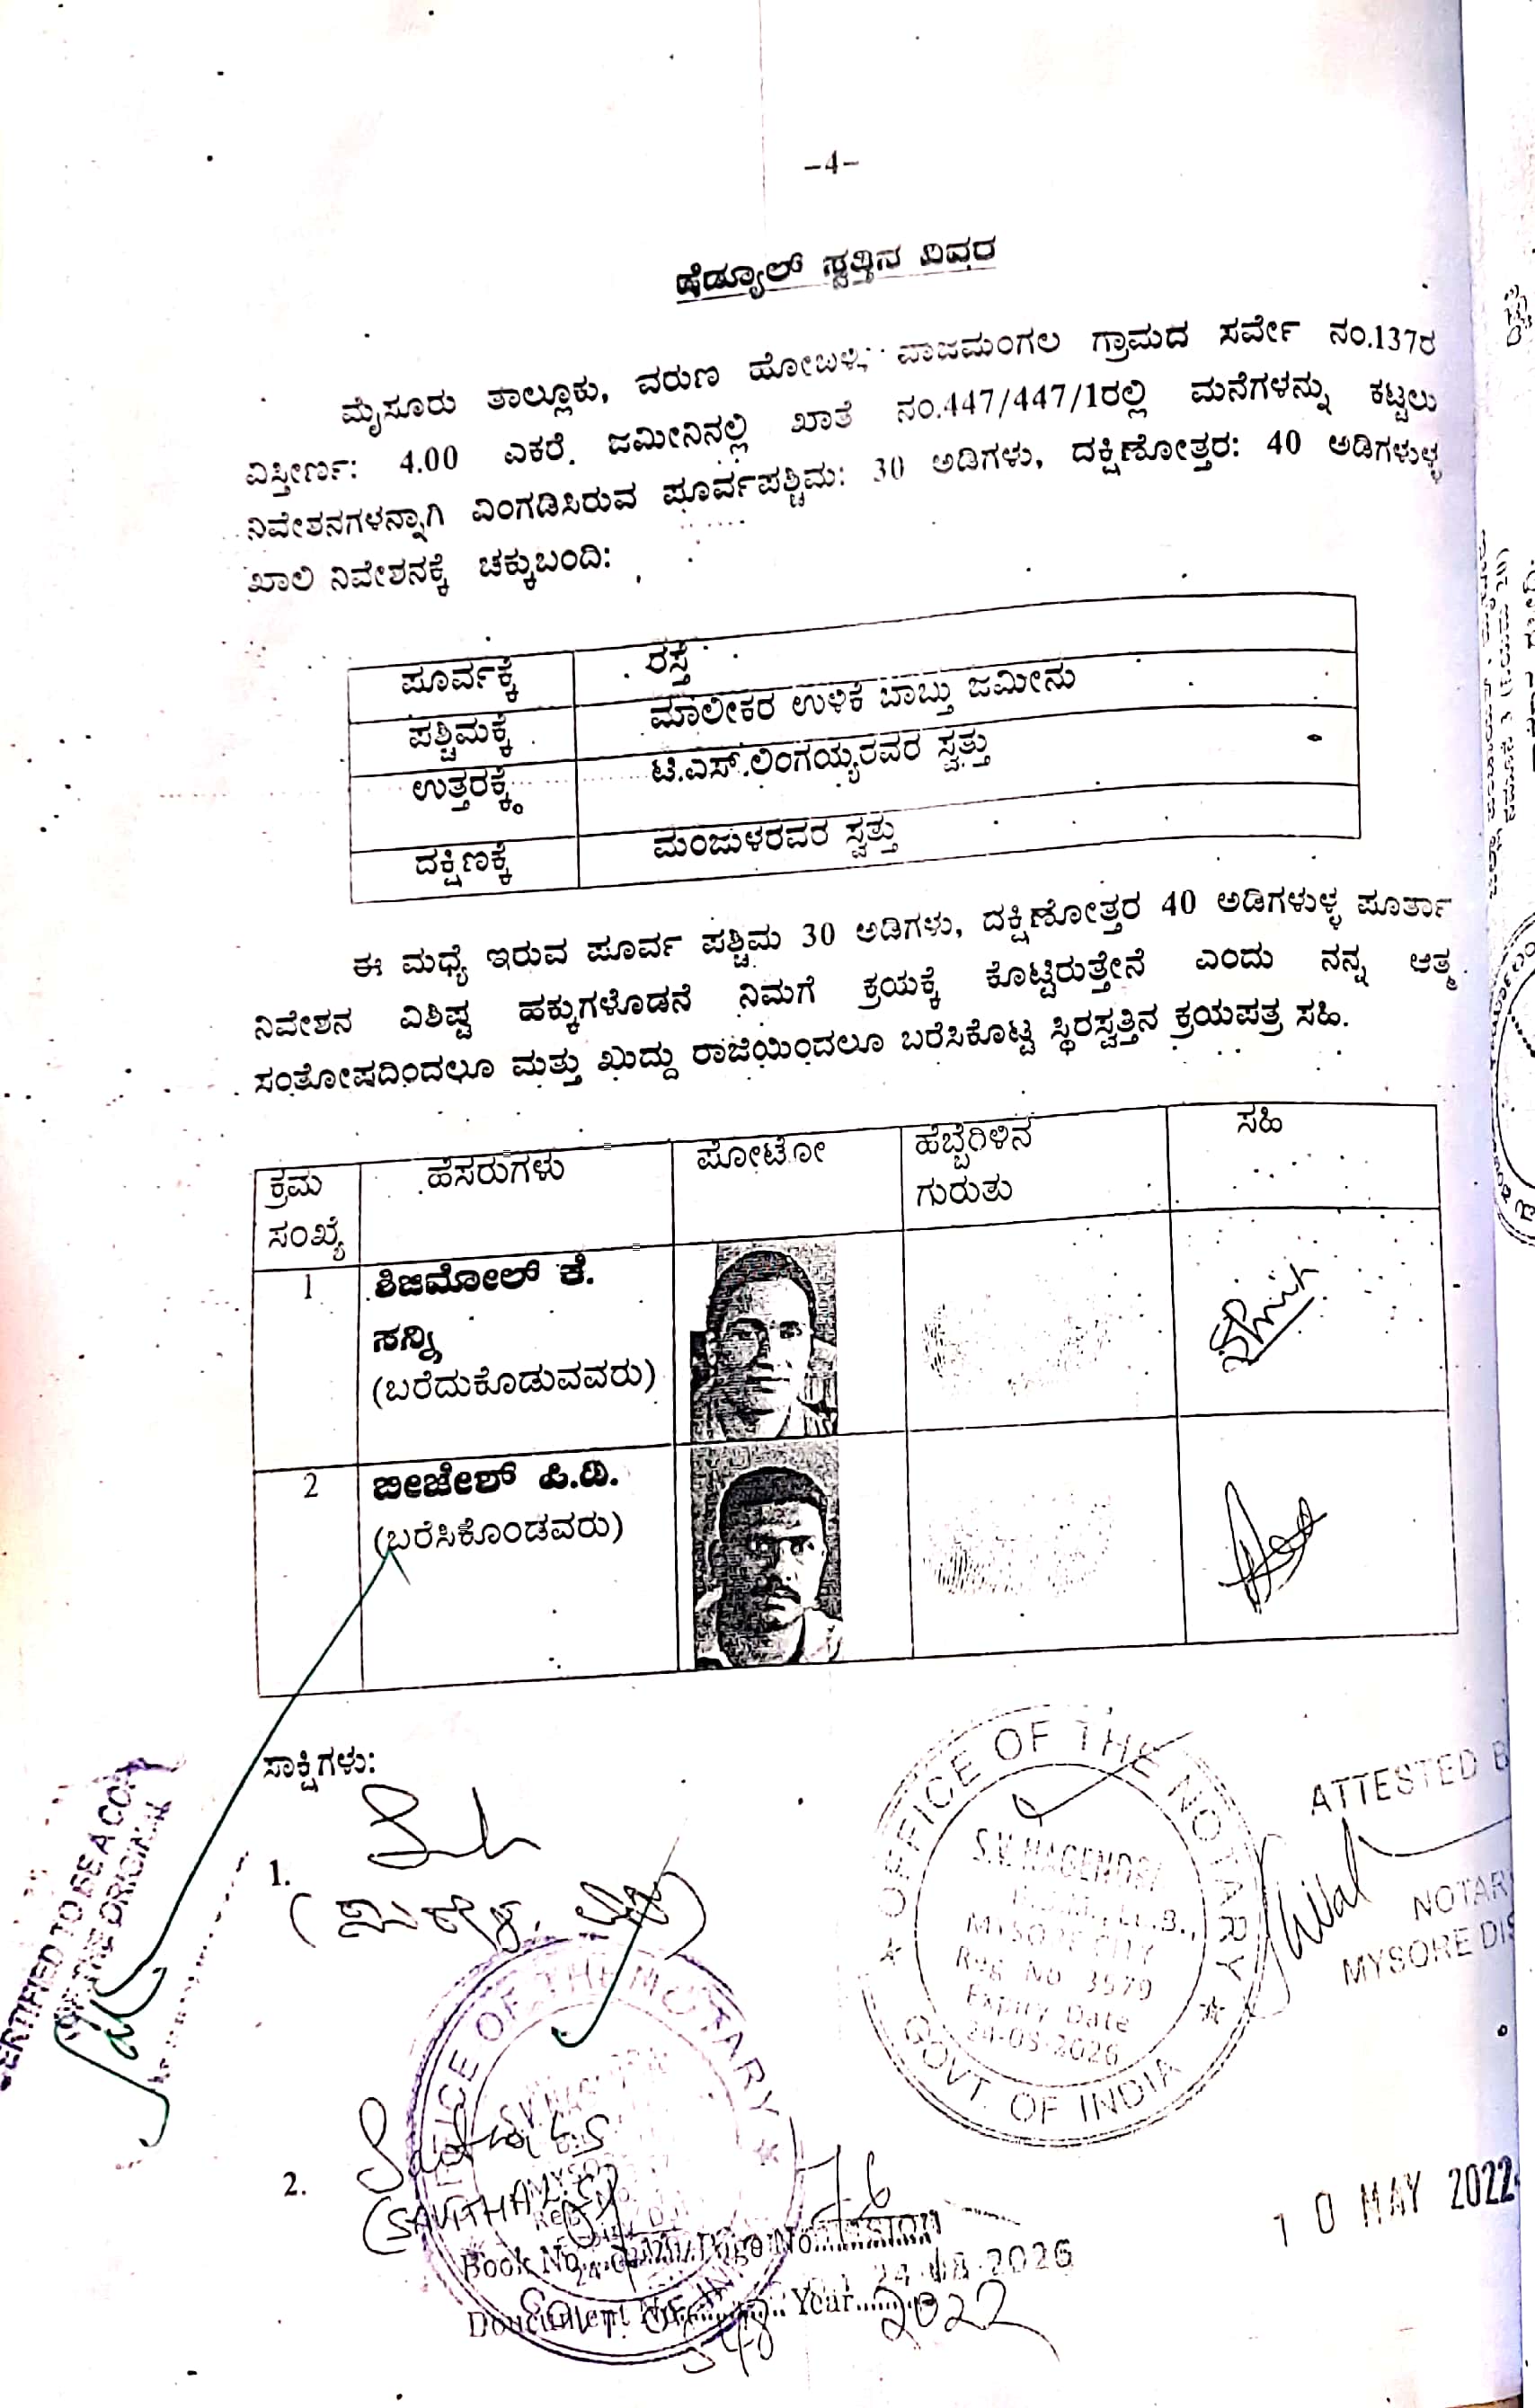 -4-
ಷೆಡ್ಯೂಲ್ ಸ್ವತ್ತಿನ ವಿವರ
ಮೈಸೂರು ತಾಲ್ಲೂಕು, ವರುಣ ಹೋಬಳಿ, ವಾಜಮಂಗಲ ಗ್ರಾಮದ ಸರ್ವೇ ನಂ.137ರ
ವಿಸ್ತೀರ್ಣ: 4.00 ಎಕರೆ ಜಮೀನಿನಲ್ಲಿ ಖಾತೆ ನಂ.447/447/1ರಲ್ಲಿ ಮನೆಗಳನ್ನು ಕಟ್ಟಲು
ನಿವೇಶನಗಳನ್ನಾಗಿ ವಿಂಗಡಿಸಿರುವ ಪೂರ್ವಪಶ್ಚಿಮ: 30 ಅಡಿಗಳು, ದಕ್ಷಿಣೋತ್ತರ: 40 ಅಡಿಗಳುಳ್ಳ
ಖಾಲಿ ನಿವೇಶನಕ್ಕೆ ಚಕ್ಕುಬಂದಿ:
ಪೂರ್ವಕ್ಕೆ ರಸ್ತೆ
ಪಶ್ಚಿಮಕ್ಕೆ ಮಾಲೀಕರ ಉಳಿಕೆ ಬಾಬ್ತು ಜಮೀನು
ಉತ್ತರಕ್ಕೆ ಟಿ.ಎಸ್.ಲಿಂಗಯ್ಯರವರ ಸ್ವತ್ತು
ದಕ್ಷಿಣಕ್ಕೆ ಮಂಜುಳರವರ ಸ್ವತ್ತು
ಈ ಮಧ್ಯೆ ಇರುವ ಪೂರ್ವ ಪಶ್ಚಿಮ 30 ಅಡಿಗಳು, ದಕ್ಷಿಣೋತ್ತರ 40 ಅಡಿಗಳುಳ್ಳ ಪೂರ್ತಾ
ನಿವೇಶನ ವಿಶಿಷ್ಟ ಹಕ್ಕುಗಳೊಡನೆ ನಿಮಗೆ ಕ್ರಯಕ್ಕೆ ಕೊಟ್ಟಿರುತ್ತೇನೆ ಎಂದು ನನ್ನ ಆತ್ಮ
ಸಂತೋಷದಿಂದಲೂ ಮತ್ತು ಖುದ್ದು ರಾಜಿಯಿಂದಲೂ ಬರೆಸಿಕೊಟ್ಟ ಸ್ಥಿರಸ್ವತ್ತಿನ ಕ್ರಯಪತ್ರ ಸಹಿ.
ಕ್ರಮ ಸಂಖ್ಯೆ ಹೆಸರುಗಳು ಫೋಟೋ ಹೆಬ್ಬೆರಳಿನ ಗುರುತು ಸಹಿ
1 ಶಿಜಿಮೋಲ್ ಕೆ.
ಸನ್ನಿ
(ಬರೆದುಕೊಡುವವರು)
2 ಬೀಜೇಶ್ ಪಿ.ವಿ.
(ಬರೆಸಿಕೊಂಡವರು)
ಸಾಕ್ಷಿಗಳು:
1.
2.
(SAVITHA
CERTIFIED TO BE A COPY
OF THE ORIGINAL
OFFICE OF THE NOTARY
GOVT. OF INDIA
S.V. NAGENDRA
MYSORE CITY
Reg No 3579
Expiry Date
24-08-2026
ATTESTED B
NOTAR
MYSORE DIS
OFFICE OF THE NOTARY
Book No. Page No. 76
24-08-2026
Document No. Year 2022
10 MAY 2022